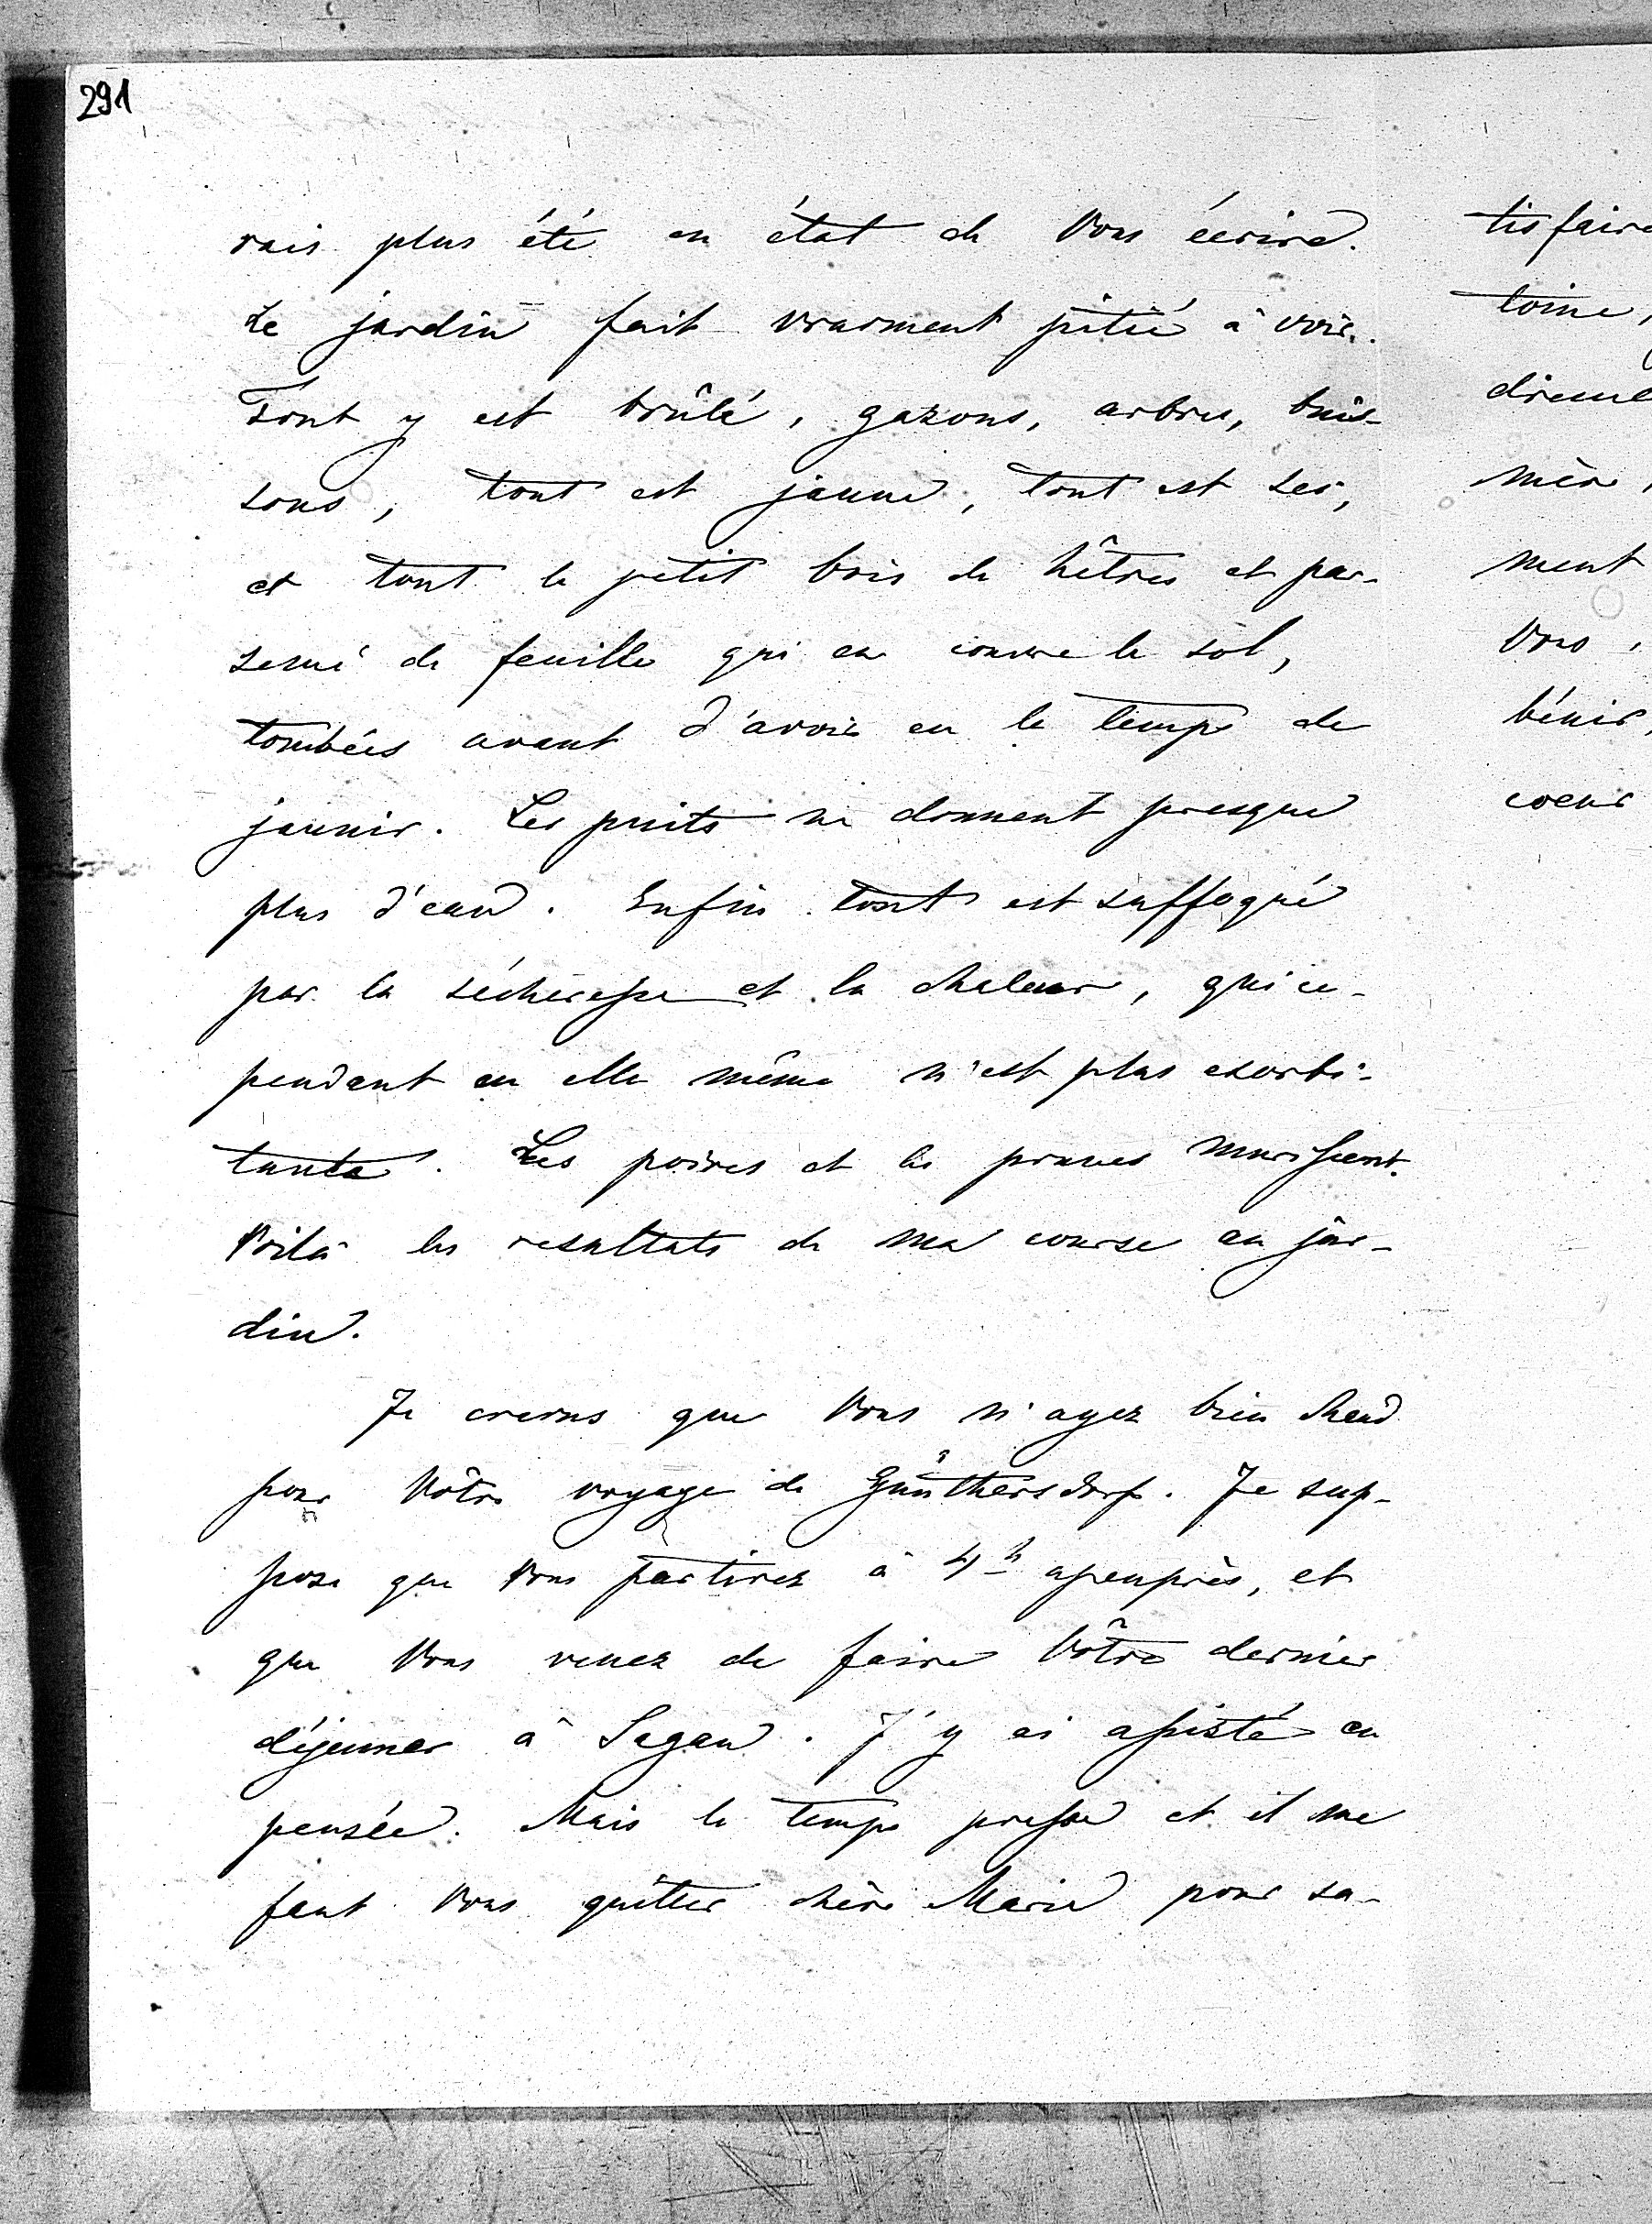 291
rais plus été en état de Vous écrire.
Le jardin fait vraiment pitié à voir.
Tout y est brûlé, gazons, arbres, buis-
sons, tout est jaune, tout est sec,
et tout le petit bois de hêtres est par-
semé de feuilles qui en couvre le sol,
tombées avant d'avoir eu le temps de
jaunir. Les puits ne donnent presque
plus d'eau. Enfin tout est suffoqué
par la sécheresse et la chaleur, qui ce-
pendant en elle même n'est plus exorbi-
tante. Les poires et les prunes murissent.
Voilà les resultats de ma course au jar-
din.
Je crains que Vous n'ayez bien chaud
pour Vôtre voyage de Günthersdorf. Je sup-
pose que Vous partirez à 4h apeuprès, et
que Vous venez de faire Vôtre dernier
déjeuner à Sagan. J'y ai assisté en
pensée. Mais le temps presse et il me
faut Vous quitter chère Marie pour sa-
tisfaire
toine,
mère,
ment
Vous,
bénir,
coeur